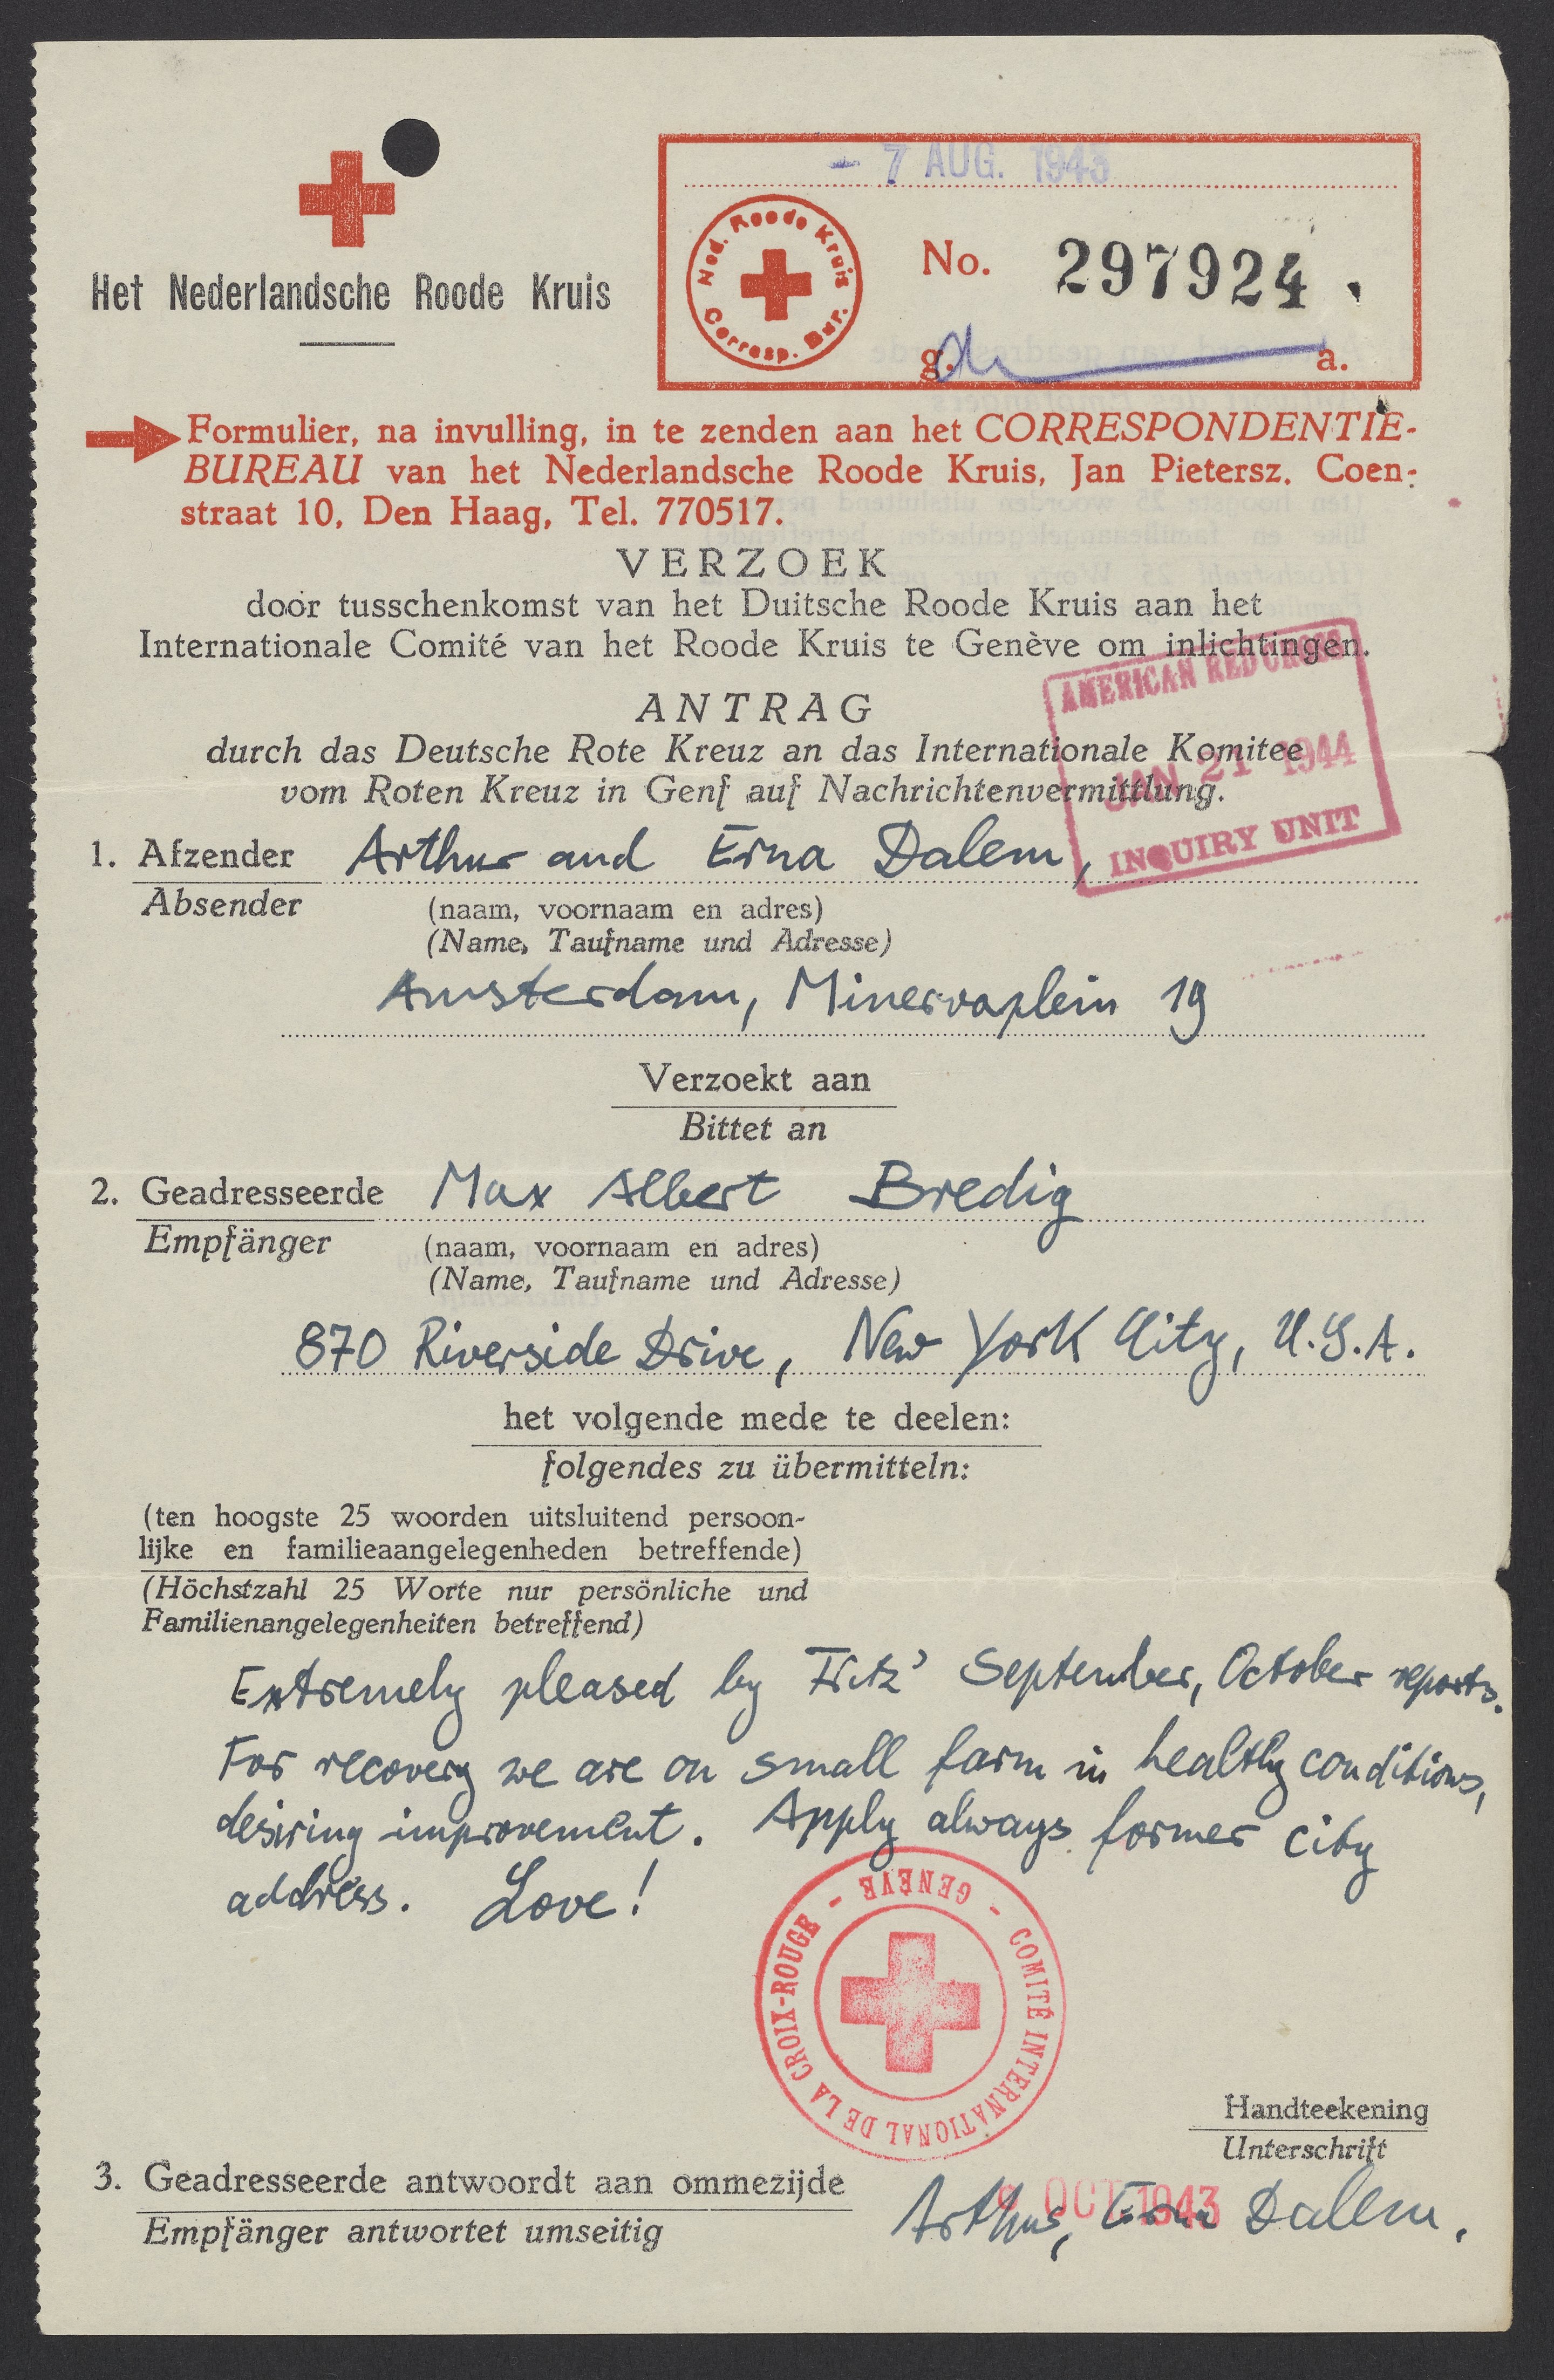 - 7 AUG. 1943
Ned. Roode Kruis
Corresp. Bur.
No. 297924
g. a.
Het Nederlandsche Roode Kruis
Formulier, na invulling, in te zenden aan het CORRESPONDENTIE-
BUREAU van het Nederlandsche Roode Kruis, Jan Pietersz. Coen-
straat 10, Den Haag, Tel. 770517.
VERZOEK
door tusschenkomst van het Duitsche Roode Kruis aan het
Internationale Comité van het Roode Kruis te Genève om inlichtingen.
AMERICAN RED CROSS
JAN 21 1944
INQUIRY UNIT
ANTRAG
durch das Deutsche Rote Kreuz an das Internationale Komitee
vom Roten Kreuz in Genf auf Nachrichtenvermittlung.
1. Afzender Arthur and Erna Dalem,
Absender
(naam, voornaam en adres)
(Name, Taufname und Adresse)
Amsterdam, Minervaplein 19
Verzoekt aan
Bittet an
2. Geadresseerde Max Albert Bredig
Empfänger
(naam, voornaam en adres)
(Name, Taufname und Adresse)
870 Riverside Drive, New York City, U.S.A.
het volgende mede te deelen:
folgendes zu übermitteln:
(ten hoogste 25 woorden uitsluitend persoon-
lijke en familieaangelegenheden betreffende)
(Höchstzahl 25 Worte nur persönliche und
Familienangelegenheiten betreffend)
Extremely pleased by Fritz' September, October reports.
For recovery we are on small farm in healthy conditions,
desiring improvement. Apply always former city
address. Love!
COMITÉ INTERNATIONAL DE LA CROIX-ROUGE - GENÈVE -
Handteekening
Unterschrift
3. Geadresseerde antwoordt aan ommezijde
Empfänger antwortet umseitig
OCT 1943
Arthur, Erna Dalem.